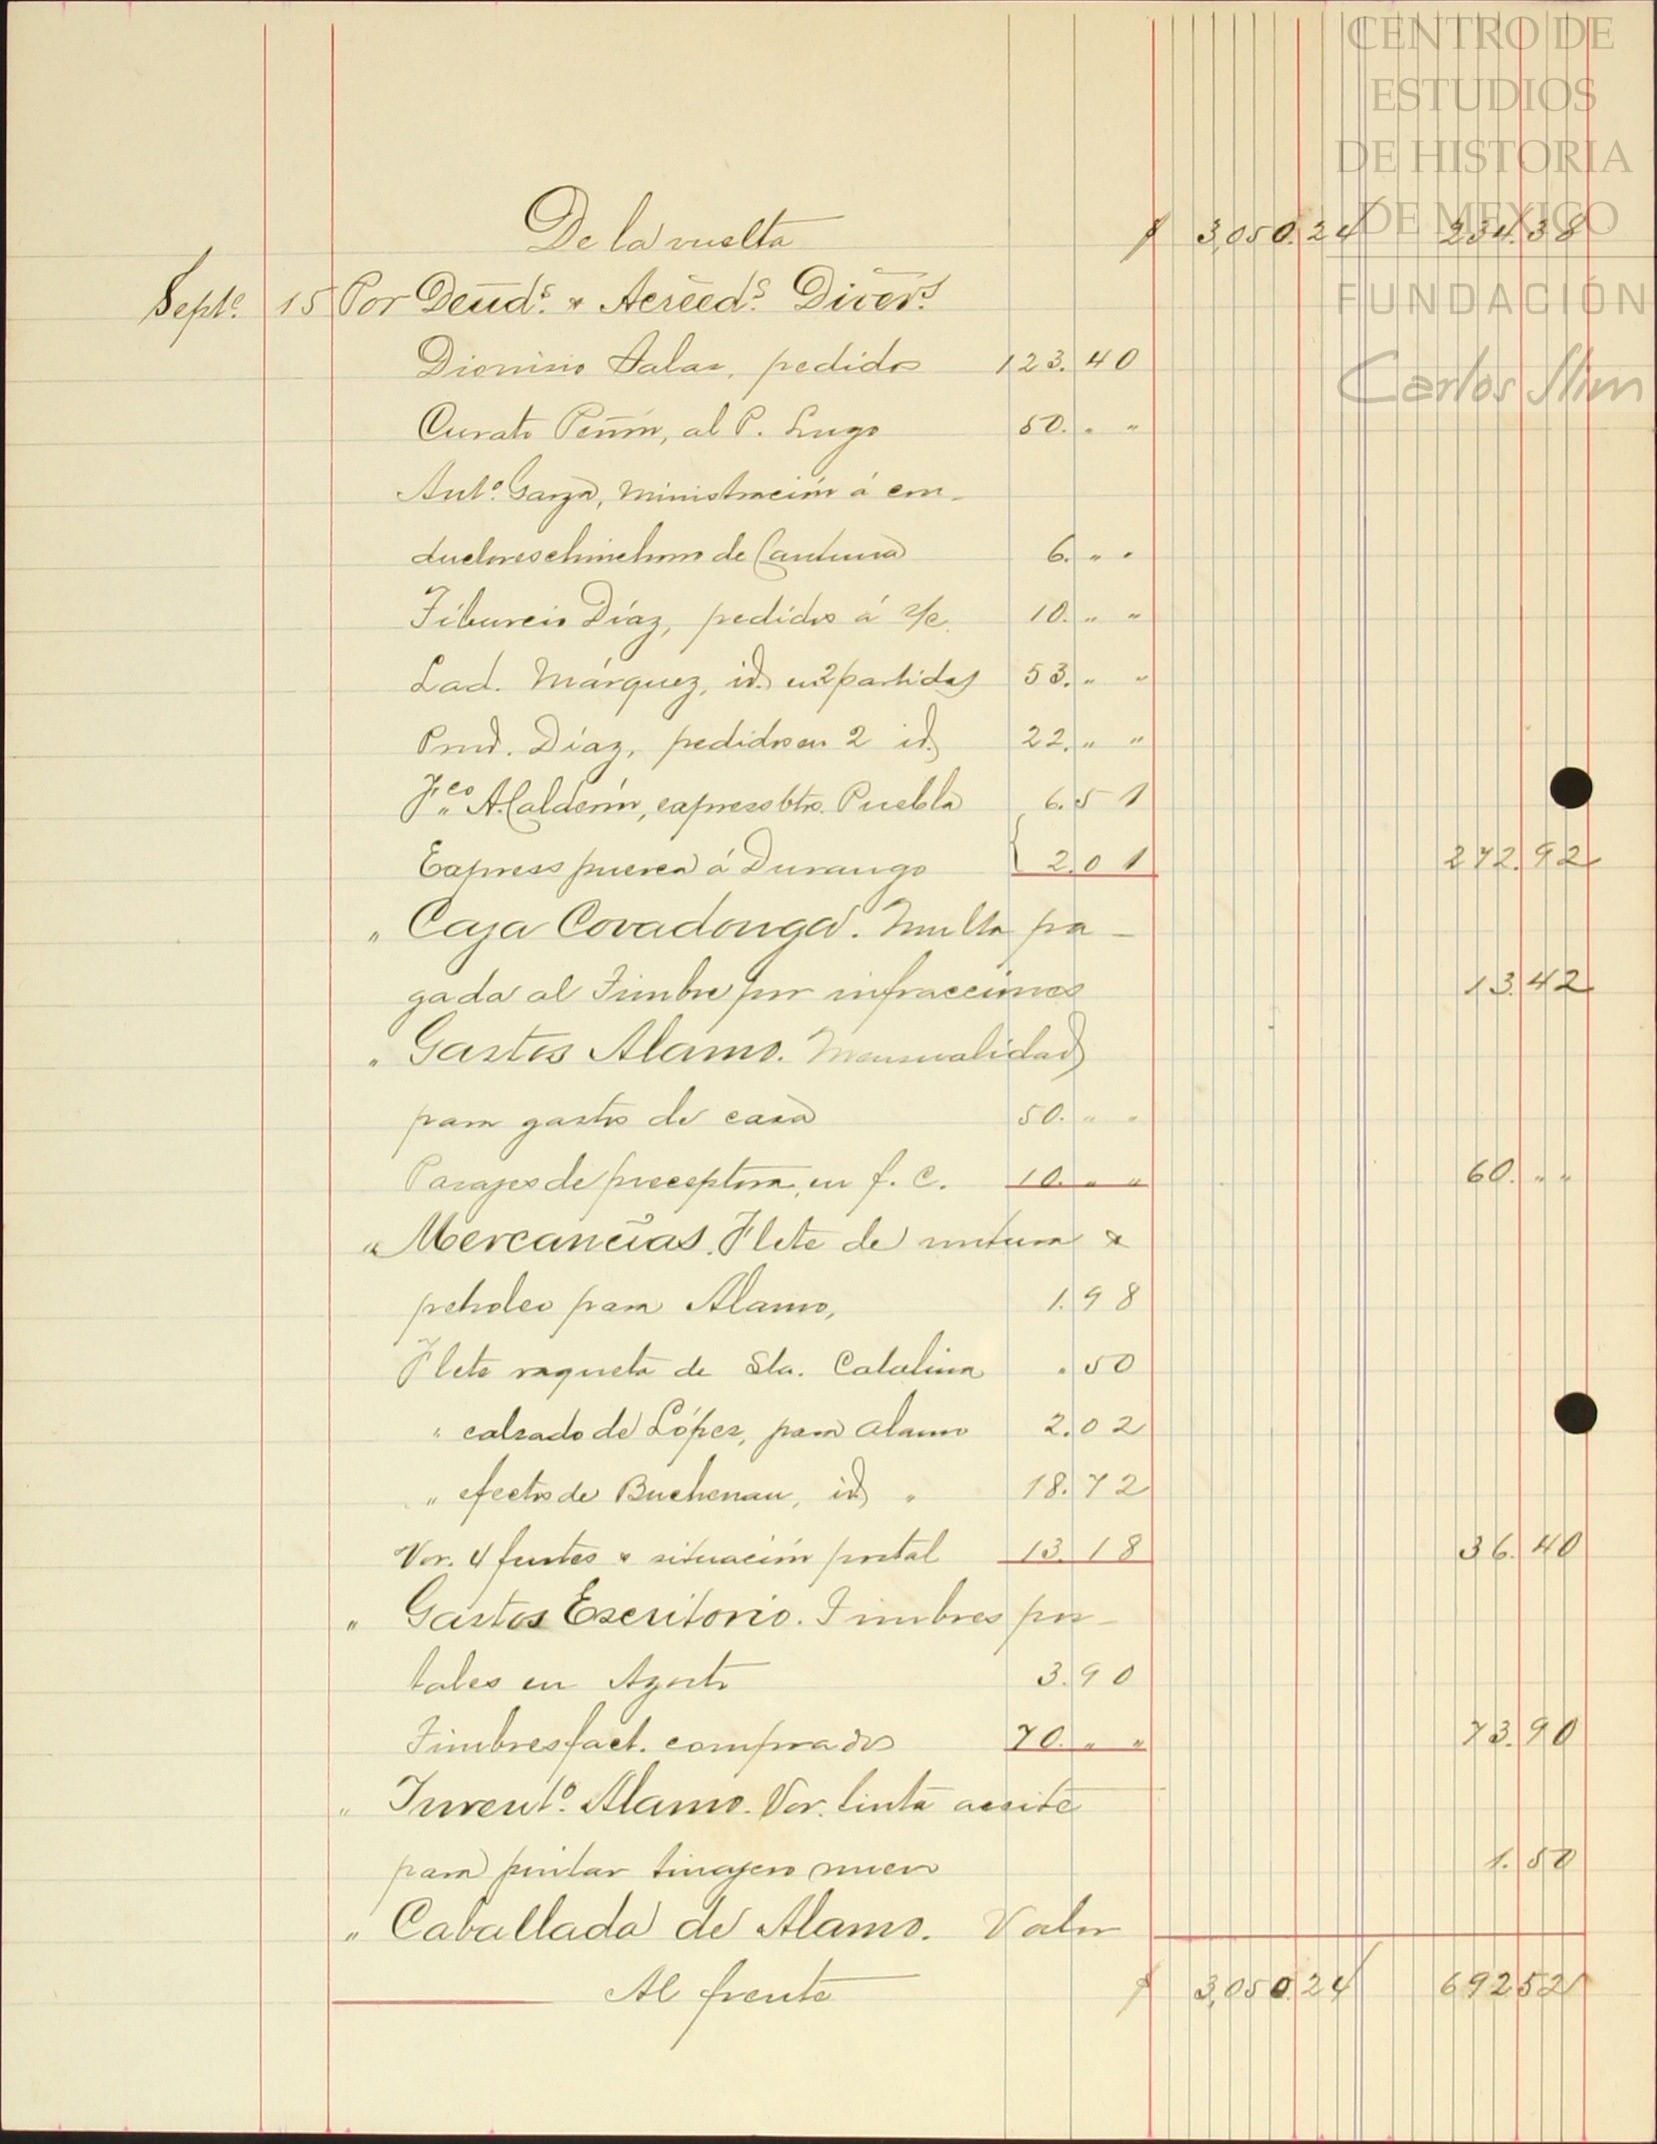 CENTRO DE
ESTUDIOS
DE HISTORIA
DE MEXICO
FUNDACIÓN
Carlos Slim
De la vuelta $ 3,050.24 234.38
Septe. 15 Por Deuds. & Acreeds. Divers.
Dionisio Salas, pedidos 123.40
Curato Peñón, al P. Lugo 50. " "
Anto. Garza, ministración á con-
ductores chinchorro de 6. " "
Tiburcio Díaz, pedidos á s/c. 10. " "
Lad. Márquez, id. en 2 partidas 53. " "
Prud. Díaz, pedidos en 2 id. 22. " "
Fco. A. Calderón, express btos. Puebla 6.51
Express puerca á Durango 2.01 272.92
" Caja Covadonga. Multa pa-
gada al Timbre por infracciones 13.42
" Gastos Alamo. Mensualidad
para gastos de casa 50. " "
Pasajes de preceptora, en f. c. 10. " " 60. " "
" Mercancías. Flete de &
petroleo para Alamo, 1.98
Flete vaqueta de Sta. Catalina .50
" calzado de López, para Alamo 2.02
" efectos de Buchenau, id " 18.72
Vor. 4 fustes & situación postal 13.18 36.40
" Gastos Escritorio. Timbres pos-
tales en Agosto 3.90
Timbres fact. comprados 70. " " 73.90
" Invento. Alamo. Vor. tinta aceite
para pintar tinajero nuevo 1.50
" Caballada de Alamo. Valor
Al frente $ 3,050.24 692.52